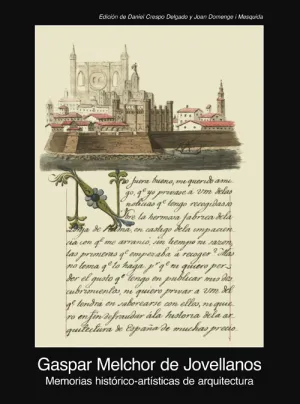 Edición de Daniel Crespo Delgado y Joan Domenge i Mesquida
No fuera bueno, mi querido ami-
go, qe. yo privase a Vm. de las
noticias qe. tengo recogidas so-
bre la hermosa fabrica de la
en castigo de la impacien
cia con qe. me arrancó, sin tiempo ni sazon,
las primeras qe. empezaba á recoger. Mas
no tema qe. lo haga, pr. qe. ni quiero per-
der el gusto qe. tengo en publicar mis des
cubrimientos, ni quiero privar a Vm. del
qe. tendra en saborearse con ellos, ni quie
ro en fin defraudar á la historia de la ar
quitectura de España de muchas precio
Gaspar Melchor de Jovellanos
Memorias histórico-artísticas de arquitectura